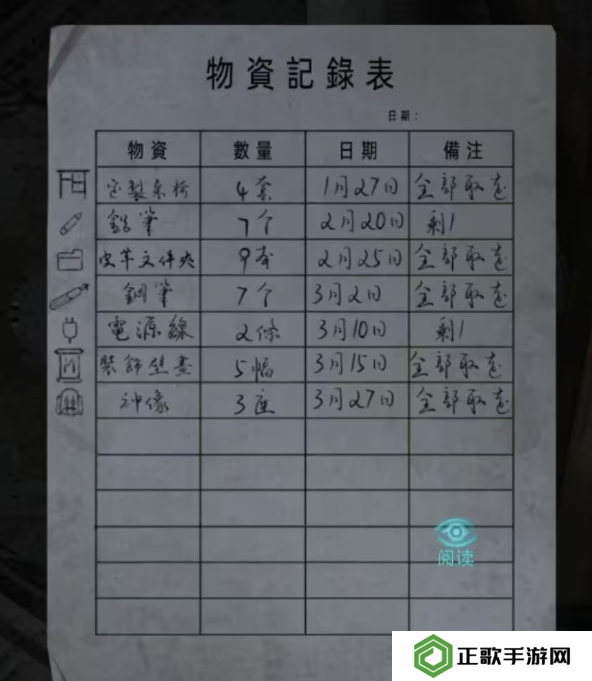 物資記錄表
日期:
物資 數量 日期 備注
定製桌椅 4套 1月27日 全部取走
鉛筆 7个 2月20日 剩1
皮革文件夾 9本 2月25日 全部取走
鋼筆 7个 3月2日 全部取走
電源線 2條 3月10日 剩1
裝飾壁畫 5幅 3月15日 全部取走
神像 3座 3月27日 全部取走
阅读
正歌手游网